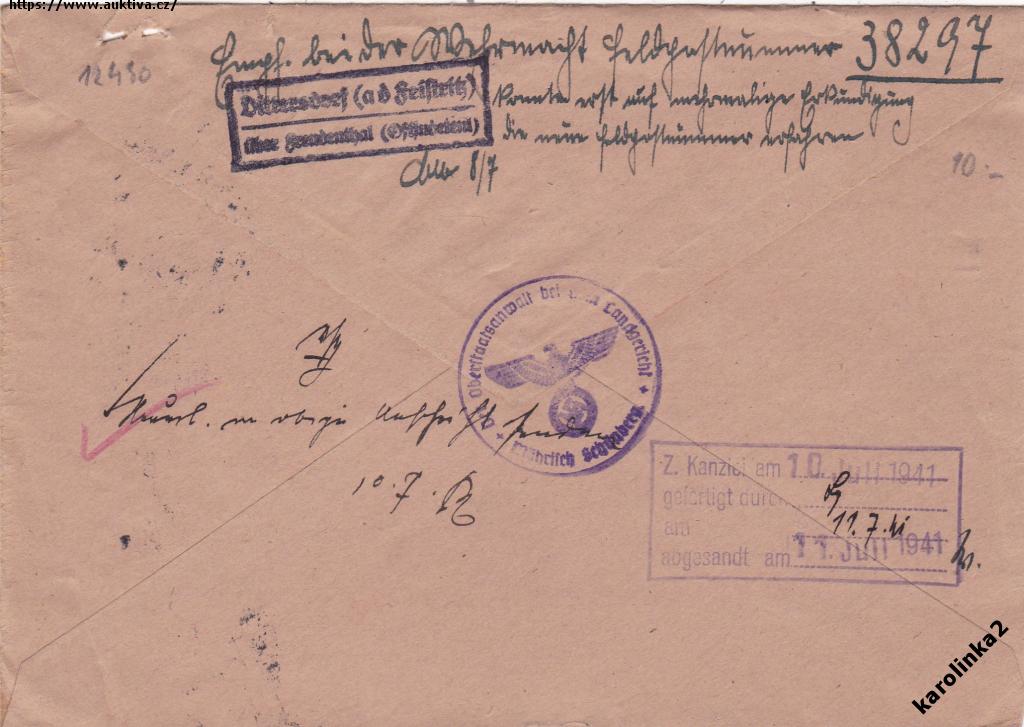 https://www.auktiva.cz/
Empf. bei der Wehrmacht Feldpostnummer 38297
12430
Dittersdorf (a d Feistritz)
über Freudenthal (Ostsudetenl)
konnte erst auf mehrmalige Erkundigung
die neue Feldpostnummer erfahren
8/7
10.-
Der Oberstaatsanwalt bei dem Landgericht
Mährisch Schönberg
an obige Anschrift senden
10.7.
Z. Kanzlei am 10. Juli 1941
gefertigt durch
11.7.41
am
abgesandt am 11. Juli 1941
karolinka2